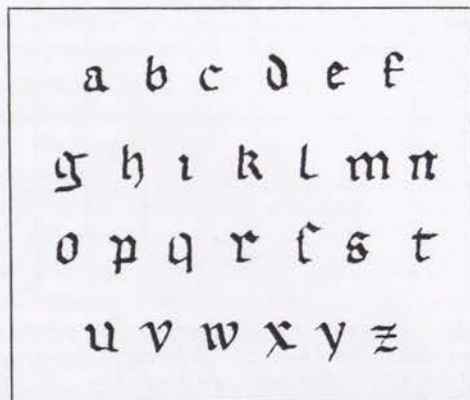 a b c d e f
g h ı k l m n
o p q r ſ s t
u v w x y z